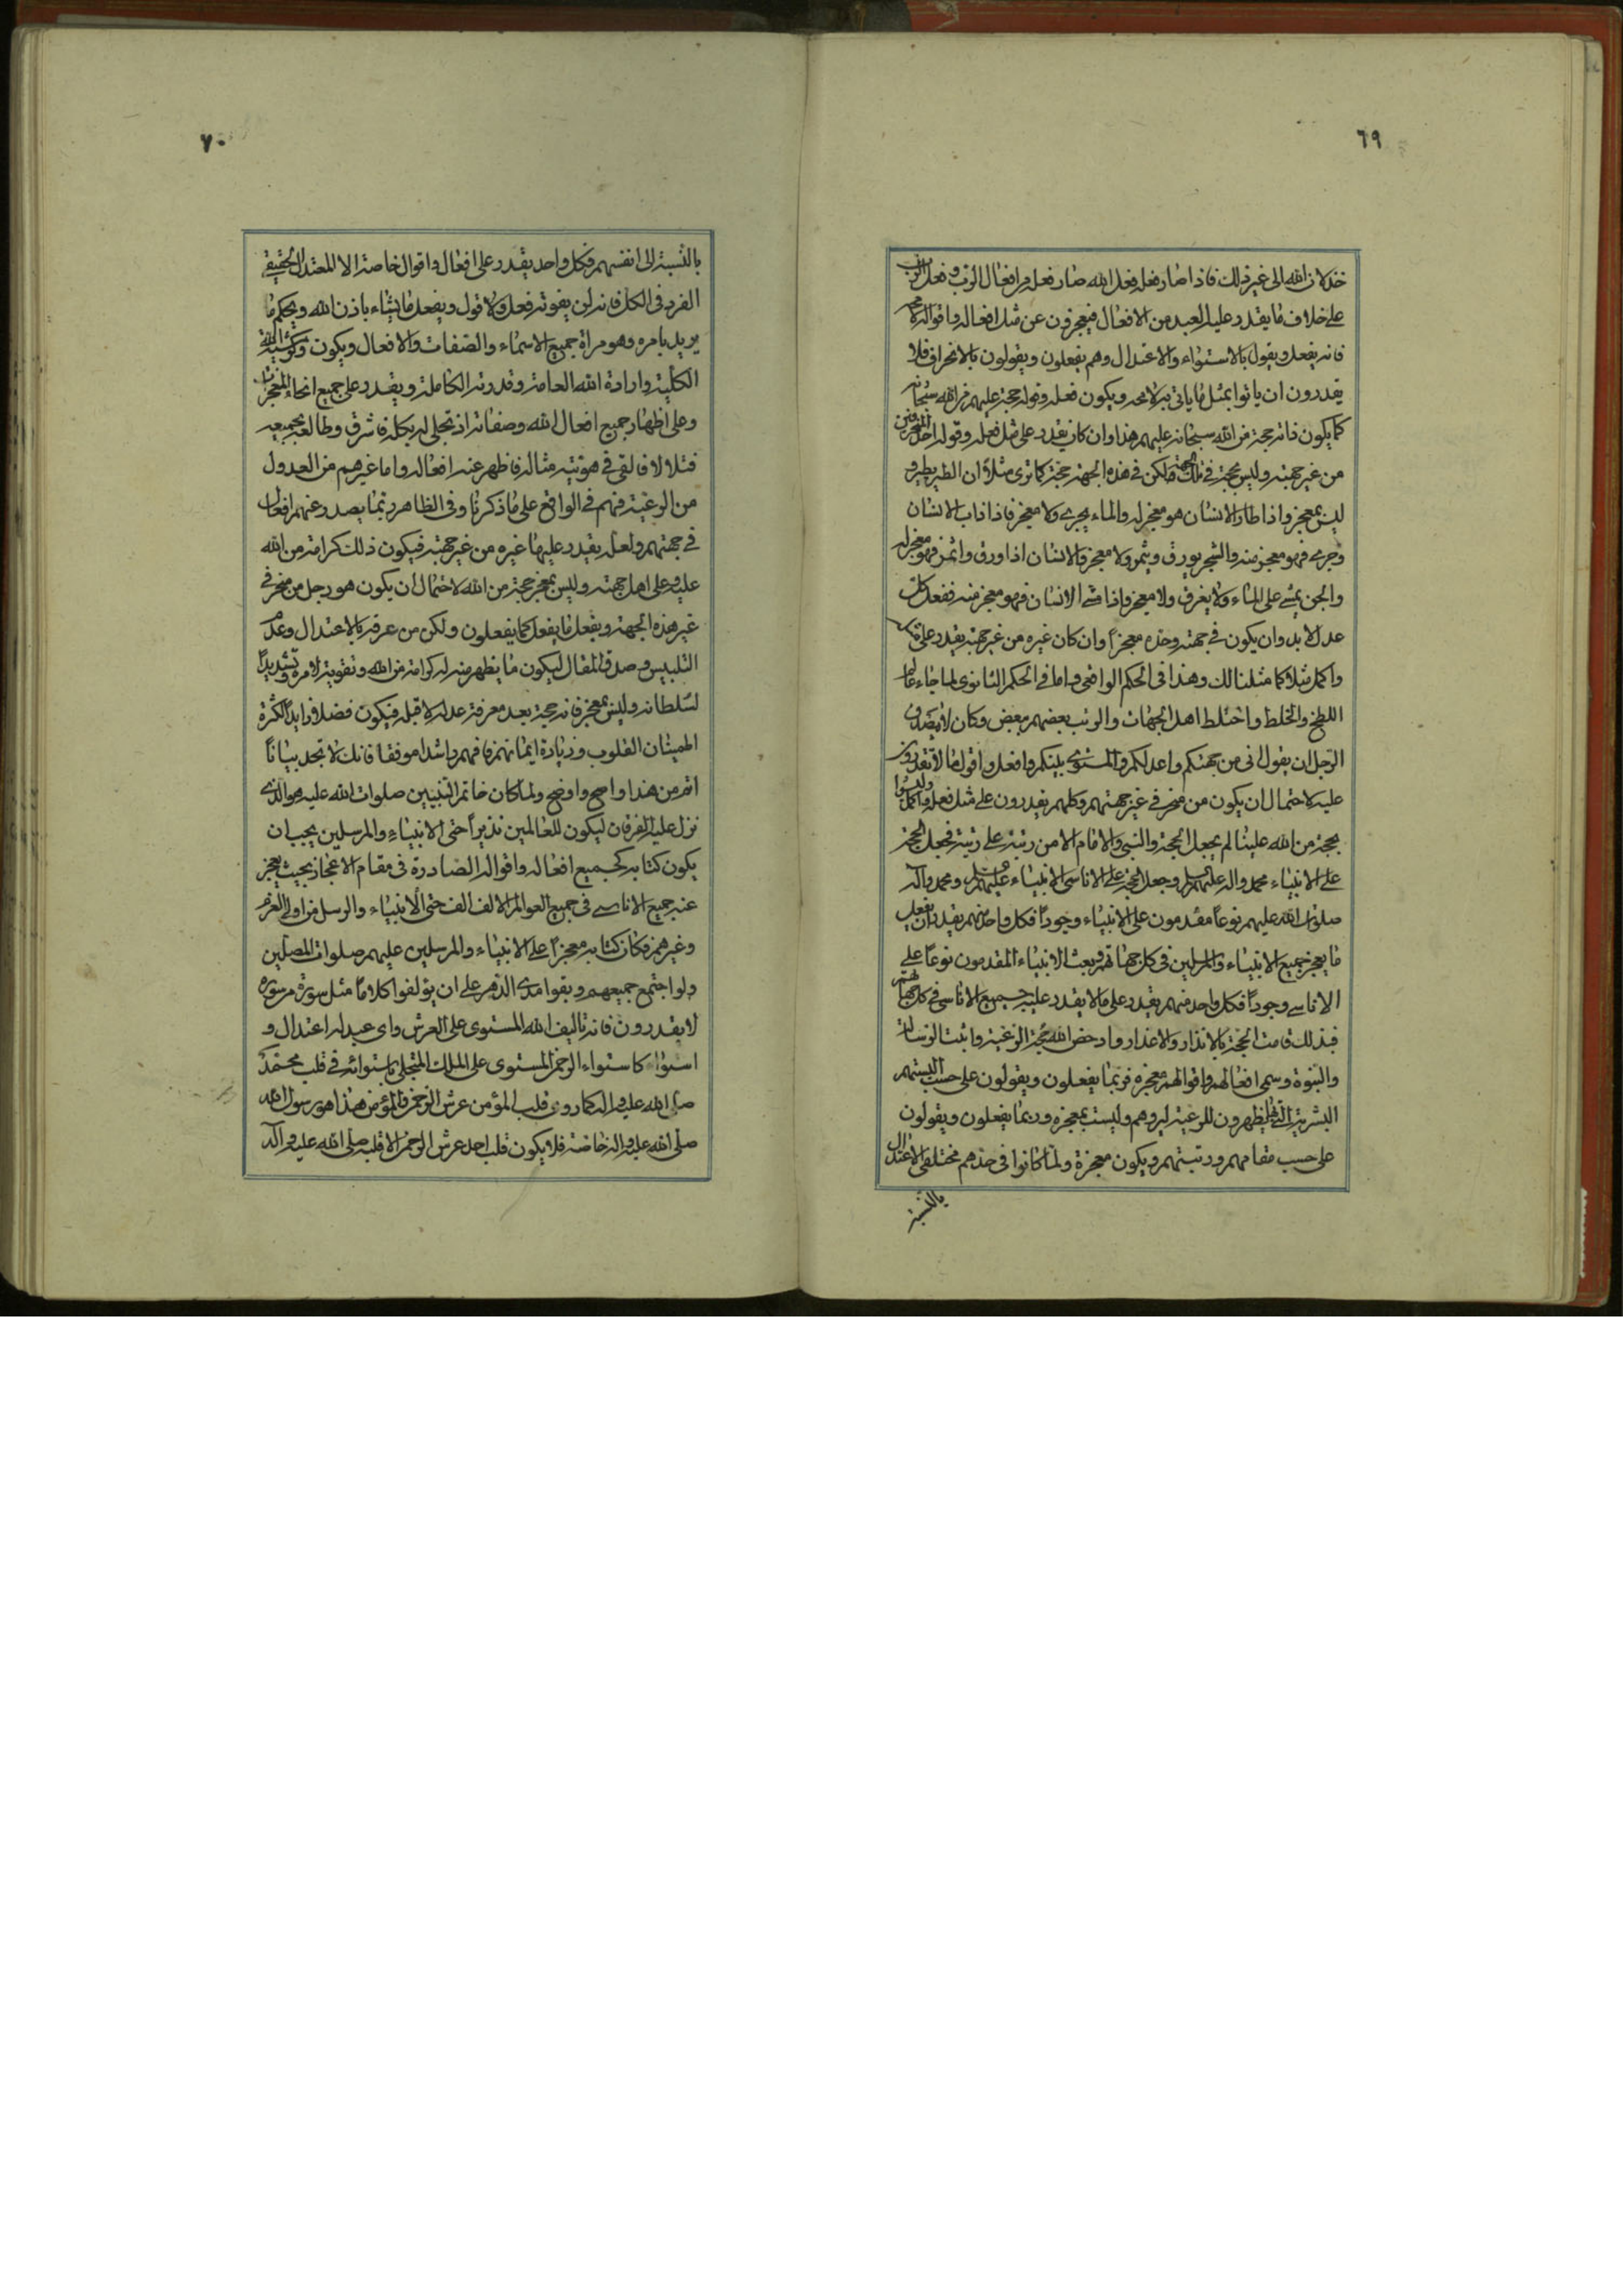 ٦٩
خذلان الله الى غير ذلك فاذا صار فعله فعل الله صار فعله من افعال الرب وفعل الرب
على خلاف ما يقدر عليه العبيد من الافعال فيعجزون عن مثل افعاله واقواله لامحة
فانه يفعل ويقول بالاستواء والاعتدال وهم يفعلون ويقولون بالانحراف فلا
يقدرون ان ياتوا بمثل ما ياتى به لامحة ويكون فعله وقوله حجة عليهم من الله سبحانه
كما يكون فانه حجة من الله سبحانه عليهم هذا وان كان يقدر على مثل فعله وقوله احد المنحرفين
من غير جهته وليس بحجة فى تلك الجهة ولكن فى هذه الجهة حجة كما ترى مثلا ان الطير يطير و
ليس بمعجز واذا طار الانسان هو معجز له والماء يجرى ولا معجز فاذا ذاب الانسان
وجرى فهو معجز منه والشجر يورق ويثمر ولا معجز والانسان اذا اورق واثمر فهو معجز له
والجن يمشى على الماء ولا يغرق ولا معجز فاذا مشى الانسان فهو معجز منه ففعل كل
عدل لابد وان يكون فى جهته وحده معجزاً وان كان غيره من غير جهته يقدر على فعله
واكمل مثلا كما مثلنا لك وهذا فى الحكم الواقعى واما فى الحكم الثانوى لما جاء عالم
اللطخ والخلط واختلط اهل الجهات والرتب بعضهم ببعض وكان لا يصدق
الرجل ان يقول انى من جهتكم واعدلكم والمستوى بينكم وافعل واقول ما لا تقدرون
عليه لاحتمال ان يكون من منحرفى غير جهتهم وكلهم يقدرون على مثل فعله واكمل وليسوا
بحجة من الله علينا لم يجعل الحجة والنبى والامام الا من رتبة على رتبة فجعل الحجة
على الانبياء محمد واله عليهم السلام وجعل الحجة على الاناسى الانبياء عليهم السلام ومحمد وآله
صلوات الله عليهم نوعاً مقدمون على الانبياء وجوداً فكل واحد منهم يقدر ان يفعل
ما يعجز جميع الانبياء والمرسلين فى كل جهاتهم وبعث الانبياء المقدمون نوعاً على
الاناسى وجوداً فكل واحد منهم يقدر على ما لا يقدر عليه جميع الاناسى فى كل جهاتهم
فبذلك قامت الحجة بالانذار والاعذار وادحض الله حجة الرعية واثبت الرسالة
والنبوة وسمى افعالهم واقوالهم معجزه فربما يفعلون ويقولون على حسب البستهم
البشرية التى بها يظهرون للرعية ليروهم وليست بمعجزه وربما يفعلون ويقولون
على حسب مقامهم ورتبتهم ويكون معجزة ولما كانوا فى حدهم مختلفى الاعتدال
بالنسبة
٧٠
بالنسبة الى انفسهم فكل واحد يقدر على افعال واقوال خاصة الا المعتدل الحقيقى
الفرد فى الكل فانه لن يفوته فعل ولا قول ويفعل ما يشاء باذن الله ويحكم ما
يريد بامره وهو مراة جميع الاسماء والصفات والافعال ويكون وكر مشية الله
الكلية وارادة الله العامة وقدرته الكاملة ويقدر على جميع انحاء المعجزات
وعلى اظهار جميع افعال الله وصفاته اذ تجلى له بكله فاشرق وطالعه بجميعه
فتلالا فالقى فى هويته مثاله فاظهر عنه افعاله واما غيرهم من العدول
من الرعية فهم فى الواقع على ما ذكرنا وفى الظاهر ربما يصدر عنهم افعال
فى جهتهم ولعله يقدر عليها غيره من غير جهته فيكون ذلك كرامة من الله
عليه وعلى اهل جهته وليس بمعجز حجة من الله لاحتمال ان يكون هو رجل من منحرفى
غير هذه الجهة ويفعل ما يفعل كما يفعلون ولكن من عرفه بالاعتدال وعدم
التلبيس وصدق المقال ليكون ما يظهر منه له كرامة من الله وتقوية لامره وتشديداً
لسلطانه وليس بمعجز فانه حجة بعد معرفة عدله لا قبله فيكون فضلا زايداً لكثرة
اطمينان القلوب وزيادة ايمانهم فافهم راشدا موفقا فانك لا تجد بياناً
اتم من هذا واصح واوضح ولما كان خاتم النبيين صلوات الله عليه هو الذى
نزل عليه الفرقان ليكون للعالمين نذيراً حتى الانبياء والمرسلين يجب ان
يكون كتابه كجميع افعاله واقواله الصادرة فى مقام الاعجاز بحيث يعجز
عنه جميع الاناسى فى جميع العوالم الالف الف حتى الانبياء والرسل من اولى العزم
وغيرهم فكان كتابه معجزاً على الانبياء والمرسلين عليهم صلوات المصلين
ولو اجتمع جميعهم وبقوا مدى الدهر على ان يؤلفوا كلاماً مثل سورة من سوره
لا يقدرون فانه تاليف الله المستوى على العرش واى عبد له اعتدال و
استواء كاستواء الرحمن المستوى على الملك المتجلى باستوائه فى قلب محمد
صلى الله عليه واله كما روى قلب المؤمن عرش الرحمن فالمؤمن هذا هو رسول الله
صلى الله عليه واله خاصة فلا يكون قلب احد عرش الرحمن الا قلبه صلى الله عليه وآله